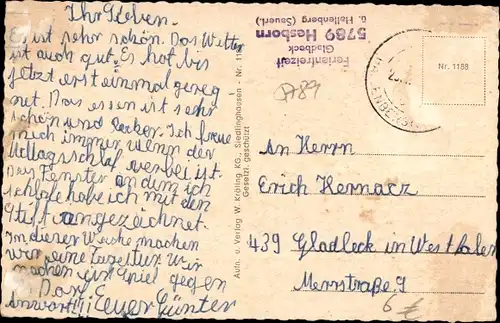 Ihr Lieben.
Es ist sehr schön. Das Wetter
ist auch gut. Es hat bis
jetzt erst einmal gereg-
net. Das essen ist sehr
schön und lecker. Ich freue
mich immer wenn der
Mittagsschlaf vorbei ist.
Das Fenster an dem ich
schlafe habe ich mit den
Stift angezeichnet.
In dieser Woche machen
wir eine Tagestur. Wir
machen ein Spiel gegen
Dorf E.
Antwort! Euer Günter
Autn. u. Verlag W. Kröling KG., Siedlinghausen - Nr. 1188
Gesetzl. geschützt
Ferienfreizeit
Gladbeck
5789 Hesborn
ü. Hallenberg (Sauerl.)
Nr. 1188
An Herrn
Erich Hernacz
439 Gladbeck in Westfalen
Merrstraße 9
6 €